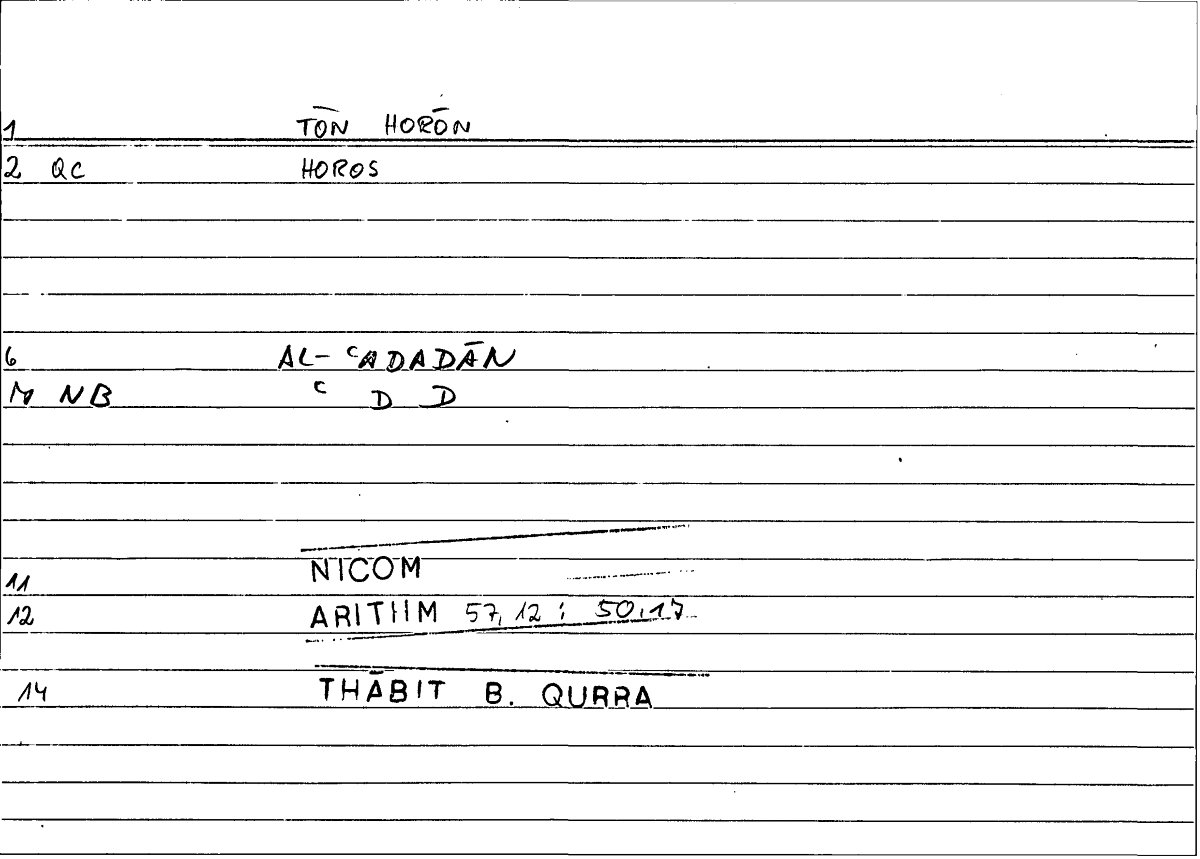 1 TŌN HORŌN
2 QC HOROS
6 AL- ᶜADADĀN
M NB ᶜ D D
11 NICOM
12 ARITHM 57,12 ; 50,17
14 THĀBIT B. QURRA